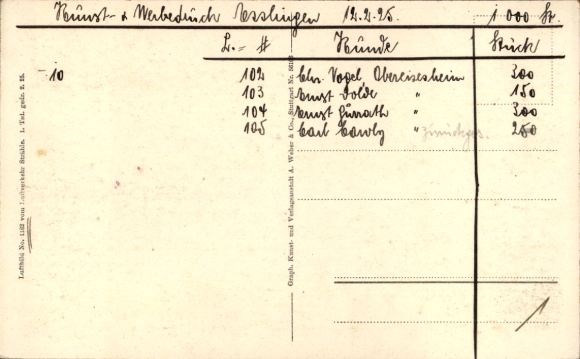 Kunst- & Werbedruck Esslingen 12.2.25. 1 000 St.
L.- # Kunde Stück
-10 102 Chr. Vogel Obereisesheim 300
103 Ernst Dolde " 150
104 Ernst " 300
105 Carl " zurückges. 250
Luftbild No. 1182 vom Luftverkehr Strähle. 1. Tsd. gedr. 2. 25.
Graph. Kunst- und Verlagsanstalt A. Weber & Co., Stuttgart Nr.
1